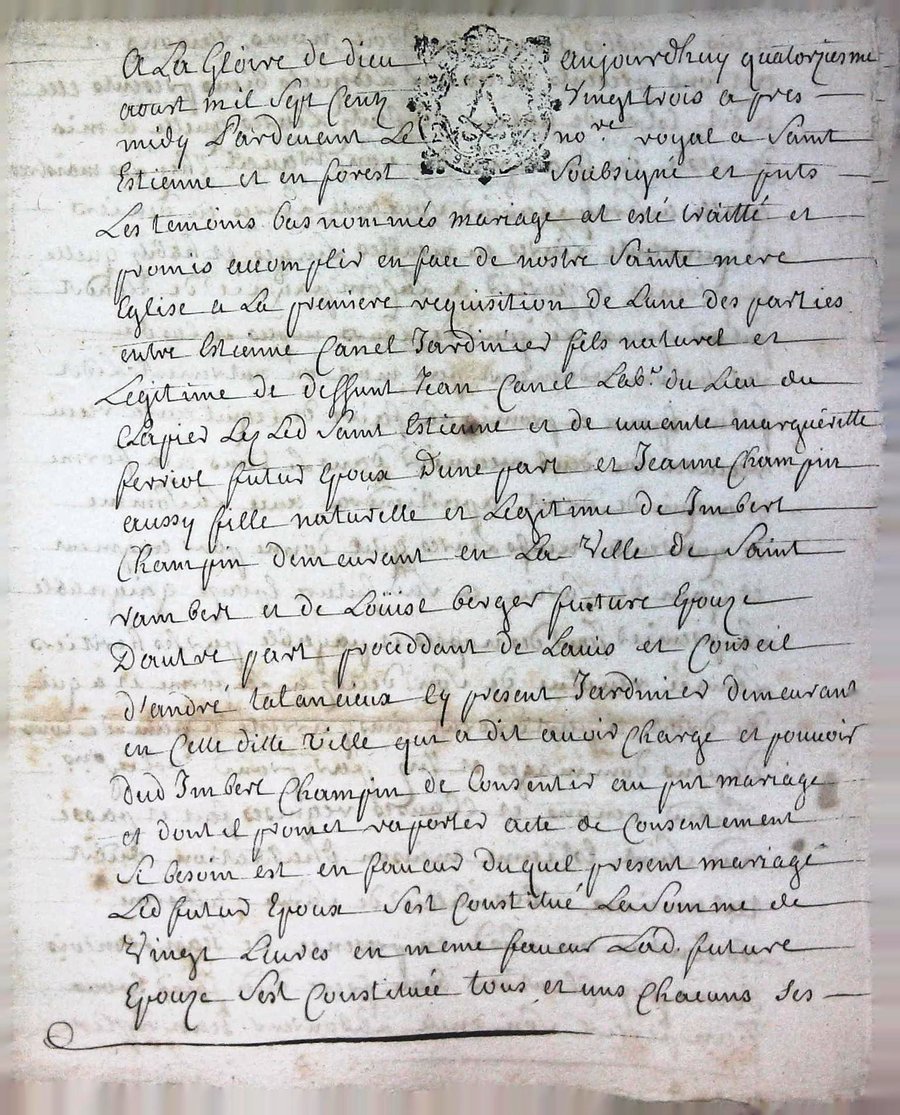 A La Gloire de dieu aujourdhuy quatorziesme
aoust mil sept Centz Vingt trois apres
midy Pardevant Le no.re royal a Saint
Estienne et en forest Soubsigné et pnts
Les temoins bas nommés mariage at esté traitté et
promis accomplir en face de nostre Sainte mere
Eglise a La premiere requisition de Lune des parties
entre Estienne Canel Jardinier fils naturel et
Legitime de deffunt Jean Canel Lab.r du Lieu du
Clapier Lez Led Saint Estienne et de vivante marguéritte
ferriol futur Epoux Dune part et Jeanne Champin
aussy fille naturelle et Legitime de Imbert
Champin demeurant en La Ville de Saint
rambert et de Loüise berger future Epouze
Dautre part proceddant de Lavis et Conseil
d'andré Jardinier demeurant
en Cette ditte Ville qui a dit avoir Charge et pouvoir
Dud Imbert Champin de Consentir au pnt mariage
et dont il promet raporter acte de Consentement
Si besoin est en faveur duquel present mariage
Led futur Epoux Sest Constitué La Somme de
Vingt Livres en meme faveur Lad. future
Epouze Sest Constituée tous et uns Chacuns Ses